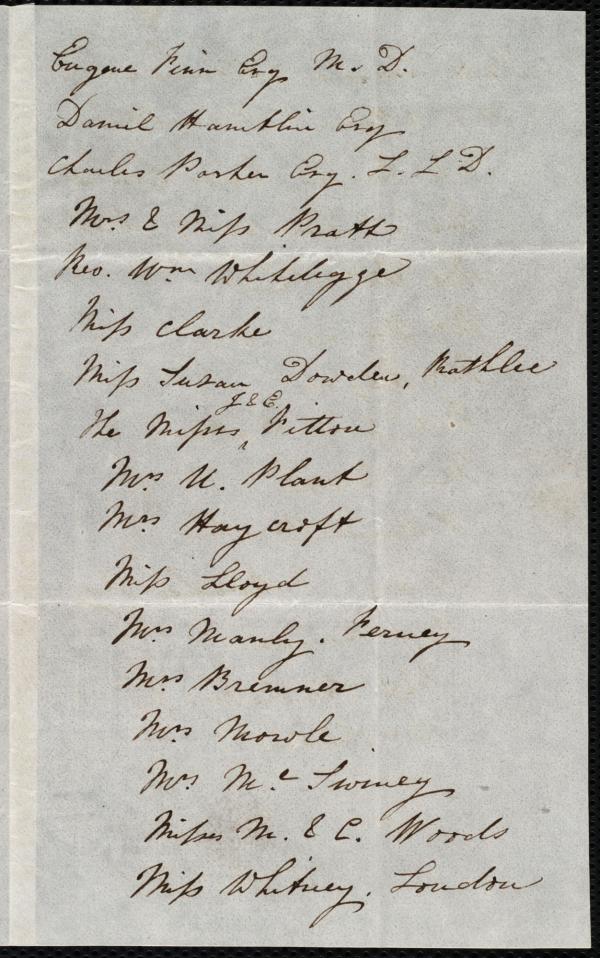 Eugene Finn Esq M. D.
Daniel Hamblin Esq
Charles Parker Esq. L. L D.
Mrs. & Miss Pratt
Rev. Wm Whitelegge
Miss Clarke
Miss Susan Dowden, Rathlee
J & E.
The Misses ^ Fitton
Mrs U. Plant
Mrs Haycroft
Miss Lloyd
Mrs Manly. Ferney
Mrs Bremner
Mrs Mowle
Mrs Mc Swiney
Misses M. & C. Woods
Miss Whitney. London